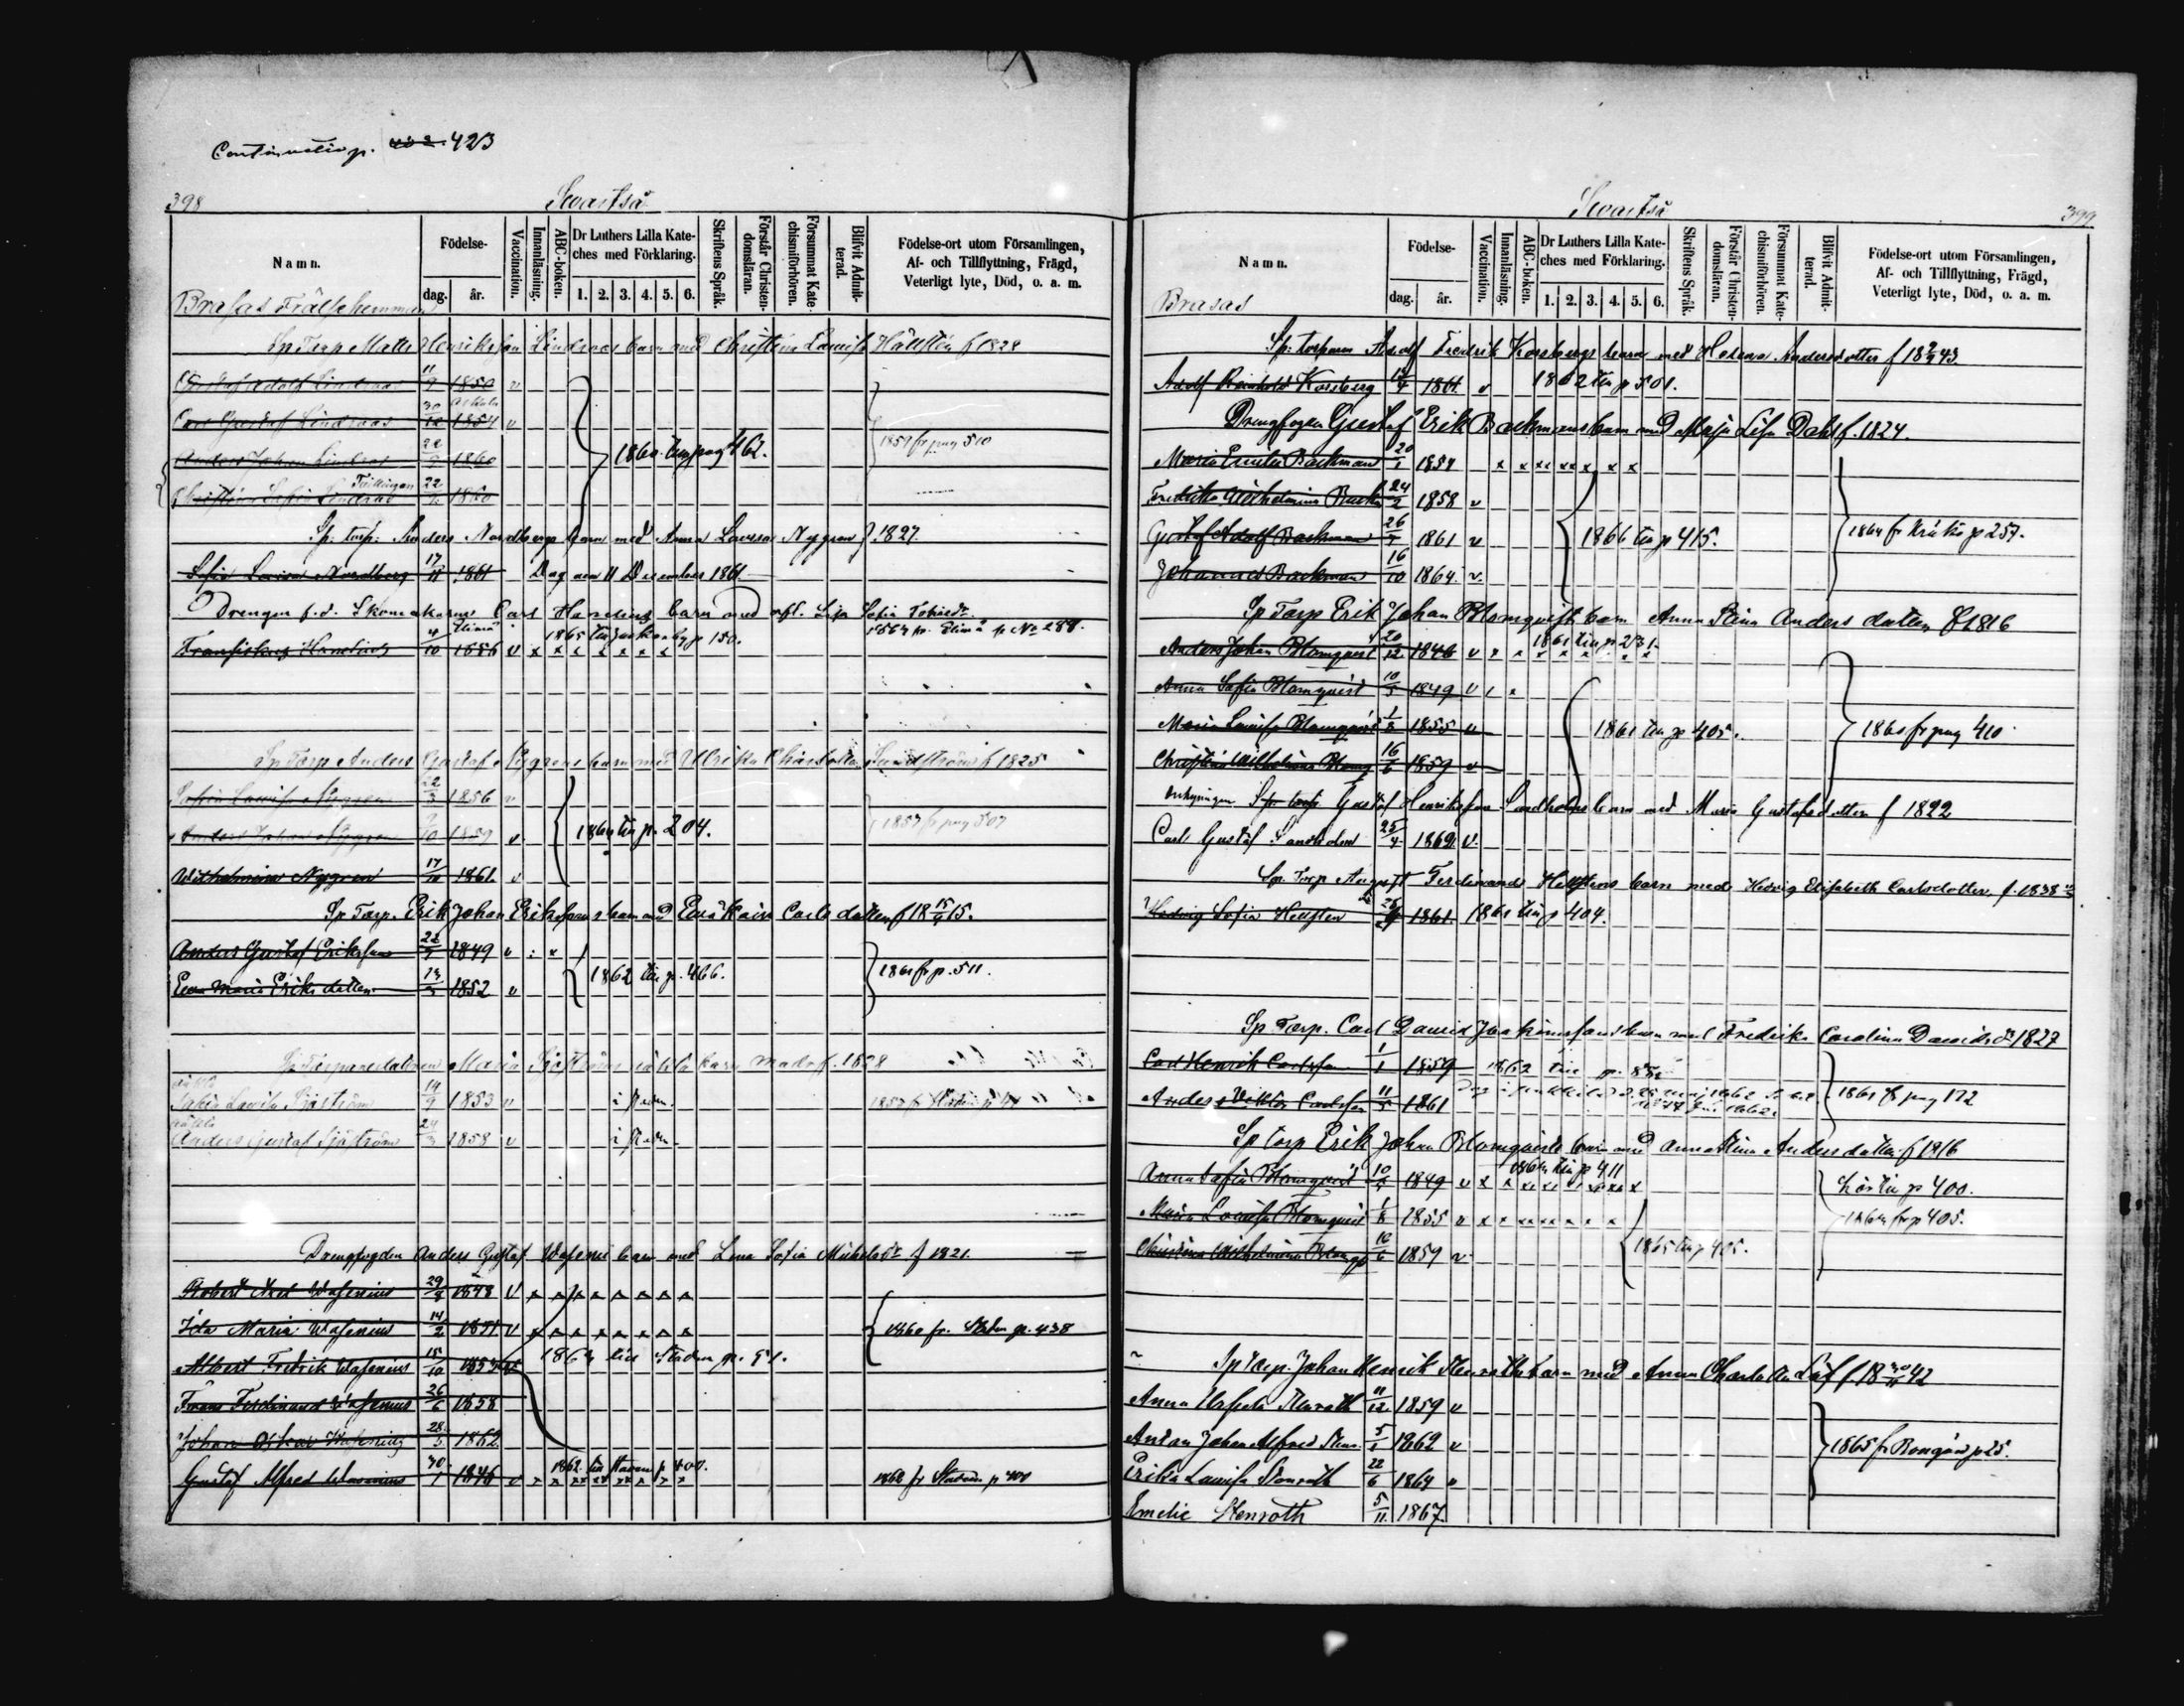 Continuatio p. 402. 423
398
Svartså
Namn.
Födelse-
dag.
år.
Vaccination.
Innanläsning.
ABC-boken.
Dr Luthers Lilla Kate-
ches med Förklaring.
1. 2. 3. 4. 5. 6.
Skriftens Språk.
Förstår Christen-
domsläran.
Försummat Kate-
chismiförhören.
Blifvit Admit-
terad.
Födelse-ort utom Församlingen,
Af- och Tillflyttning, Frägd,
Veterligt lyte, Död, o. a. m.
Brasas Frälsehemman
Sp Torp Matts Henriksson Lindroos barn med Christina Lovisa Hällsten f 1828
Gustaf Adolf Lindroos 11/9 1850 v
Carl Gustaf Lindroos 30/12 1854 v
Anders Johan Lindroos 22/9 1860
1860 till pag 462.
1859 fr pag 510
Tvillingar
Christina Sofia Lindroos 22/9 1860
Sp: torp: Anders Nordbergs barn med Anna Lovisa Nygren f 1827.
Sofia Lovisa Nordberg 17/11 1861 Dog den 11 December 1861
Drengen f.d. Skomakaren Carl Hamelins barn med afl. Lisa Sofia
Elimä
1865 till p 150.
1864 fr. Elimä p No 288.
Hamelin 4/10 1856 v x x x x x x x
Sp Torp Anders Gustaf Nygrens barn med Ulrika Charlotta Sundström f 1825
Sofia Lovisa Nygren 22/3 1856 v
Anders Johan Nygren 9/10 1859 v
1864 till p. 204.
1857 fr pag 507
Wilhelmina Nygren 17/11 1861 v
Sp Torp. Erik Johan Erikssons barn med Eva Kaisa Carlsdotter f 18 15/9 15.
Anders Gustaf Eriksson 22/5 1849 v
1862 till p. 466.
1861 fr p. 511.
Eva Maria Eriksdotter 13/3 1852 v
Sp Torparedottren Maria Sjöströms oäkta barn modr f. 1828
oäkta
Sofia Lovisa Sjöström 14/9 1853 v i staden.
oäkta
Anders Gustaf Sjöström 24/3 1858 v i staden
Drengfogden Anders Gustaf Wasenii barn med Lena Sofia Michelsdr f 1821.
Robert Axel Wasenius 29/9 1848 v x x x x x x x x
Ida Maria Wasenius 14/2 1851 v x x x x x x x x
1860 fr. Staden p. 438
Albert Fredrik Wasenius 15/10 1853 v 1863 till Staden p. 91.
Frans Ferdinand Wasenius 26/6 1858
Johan Oskar Wasenius 28/5 1862
1862 till Staden p 400.
Gustaf Alfred Wasenius 30/1 1846 v x x x x x x x x
1862 fr Staden p 400
Svartså
399
Namn.
Födelse-
dag.
år.
Vaccination.
Innanläsning.
ABC-boken.
Dr Luthers Lilla Kate-
ches med Förklaring.
1. 2. 3. 4. 5. 6.
Skriftens Språk.
Förstår Christen-
domsläran.
Försummat Kate-
chismiförhören.
Blifvit Admit-
terad.
Födelse-ort utom Församlingen,
Af- och Tillflyttning, Frägd,
Veterligt lyte, Död, o. a. m.
Brasas
Sp: torparn Adolf Fredrik Korsbergs barn med Helena Andersdotter f 18 2/9 43
Adolf Reinhold Korsberg 13/4 1861 v 1862 till p 501.
Drengfogen Gustaf Erik Backmans barn med Maja Lisa Dahl f. 1824.
Maria Emilia Backman 20/1 1854 x x x x x x x x
Fredrika Wilhelmina Backm 24/2 1858 v
Gustaf Adolf Backman 26/7 1861 v
1866 till p 415.
1864 fr Kråkö p 257.
Johannes Backman 16/10 1864 v.
Sp Torp Erik Johan Blomqvist barn Anna Stina Andersdotter f 1816
1861 till p 231.
Anders Johan Blomqvist 20/12 1846 v x x x x x x x x
Anna Sofia Blomqvist 10/5 1849 v x x
Maria Lovisa Blomqvist 1/8 1855 v
1861 till p 405.
1861 fr pag 410
Christina Wilhelmina Blomq 16/6 1859 v
Inhysingen Sp torp Gustaf Henriksson Sandholms barn med Maria Gustafsdotter f 1822
Carl Gustaf Sandholm 25/4 1862. v.
Sp. Torp August Ferdinand Hellstens barn med Hedvig Elisabeth Carlsdotter f. 1838
Hedvig Sofia Hellsten 1861. 1861 till p 404.
Sp Torp. Carl David Joakimssons barn med Fredrika Carolina Davidsdr 1827
Carl Henrik Carlsson 1/1 1859 1862 till p. 852
Anders Viktor Carlsson 11/5 1861
1861 fr pag 172
Sp torp Erik Johan Blomqvists barn med Anna Stina Andersdotter f 1816
1864 till p 411
Anna Sofia Blomqvist 10/5 1849 v x x x x x x x x
1864 fr p 405.
Maria Lovisa Blomqvist 1/8 1855 v x x x x x x x
1865 till p 405.
Christina Wilhelmina Blomqv 16/6 1859 v
Sp Torp. Johan Henrik Stenroths barn med Anna Charlotta Löf f. 18 30/11 42
Anna Ursula Stenroth 11/12 1859 v
Anton Johan Alfred Sten. 5/1 1862 v
1865 fr Borgård p 25.
Erika Lovisa Stenroth 22/6 1864 v
Emelie Stenroth 5/11 1867.